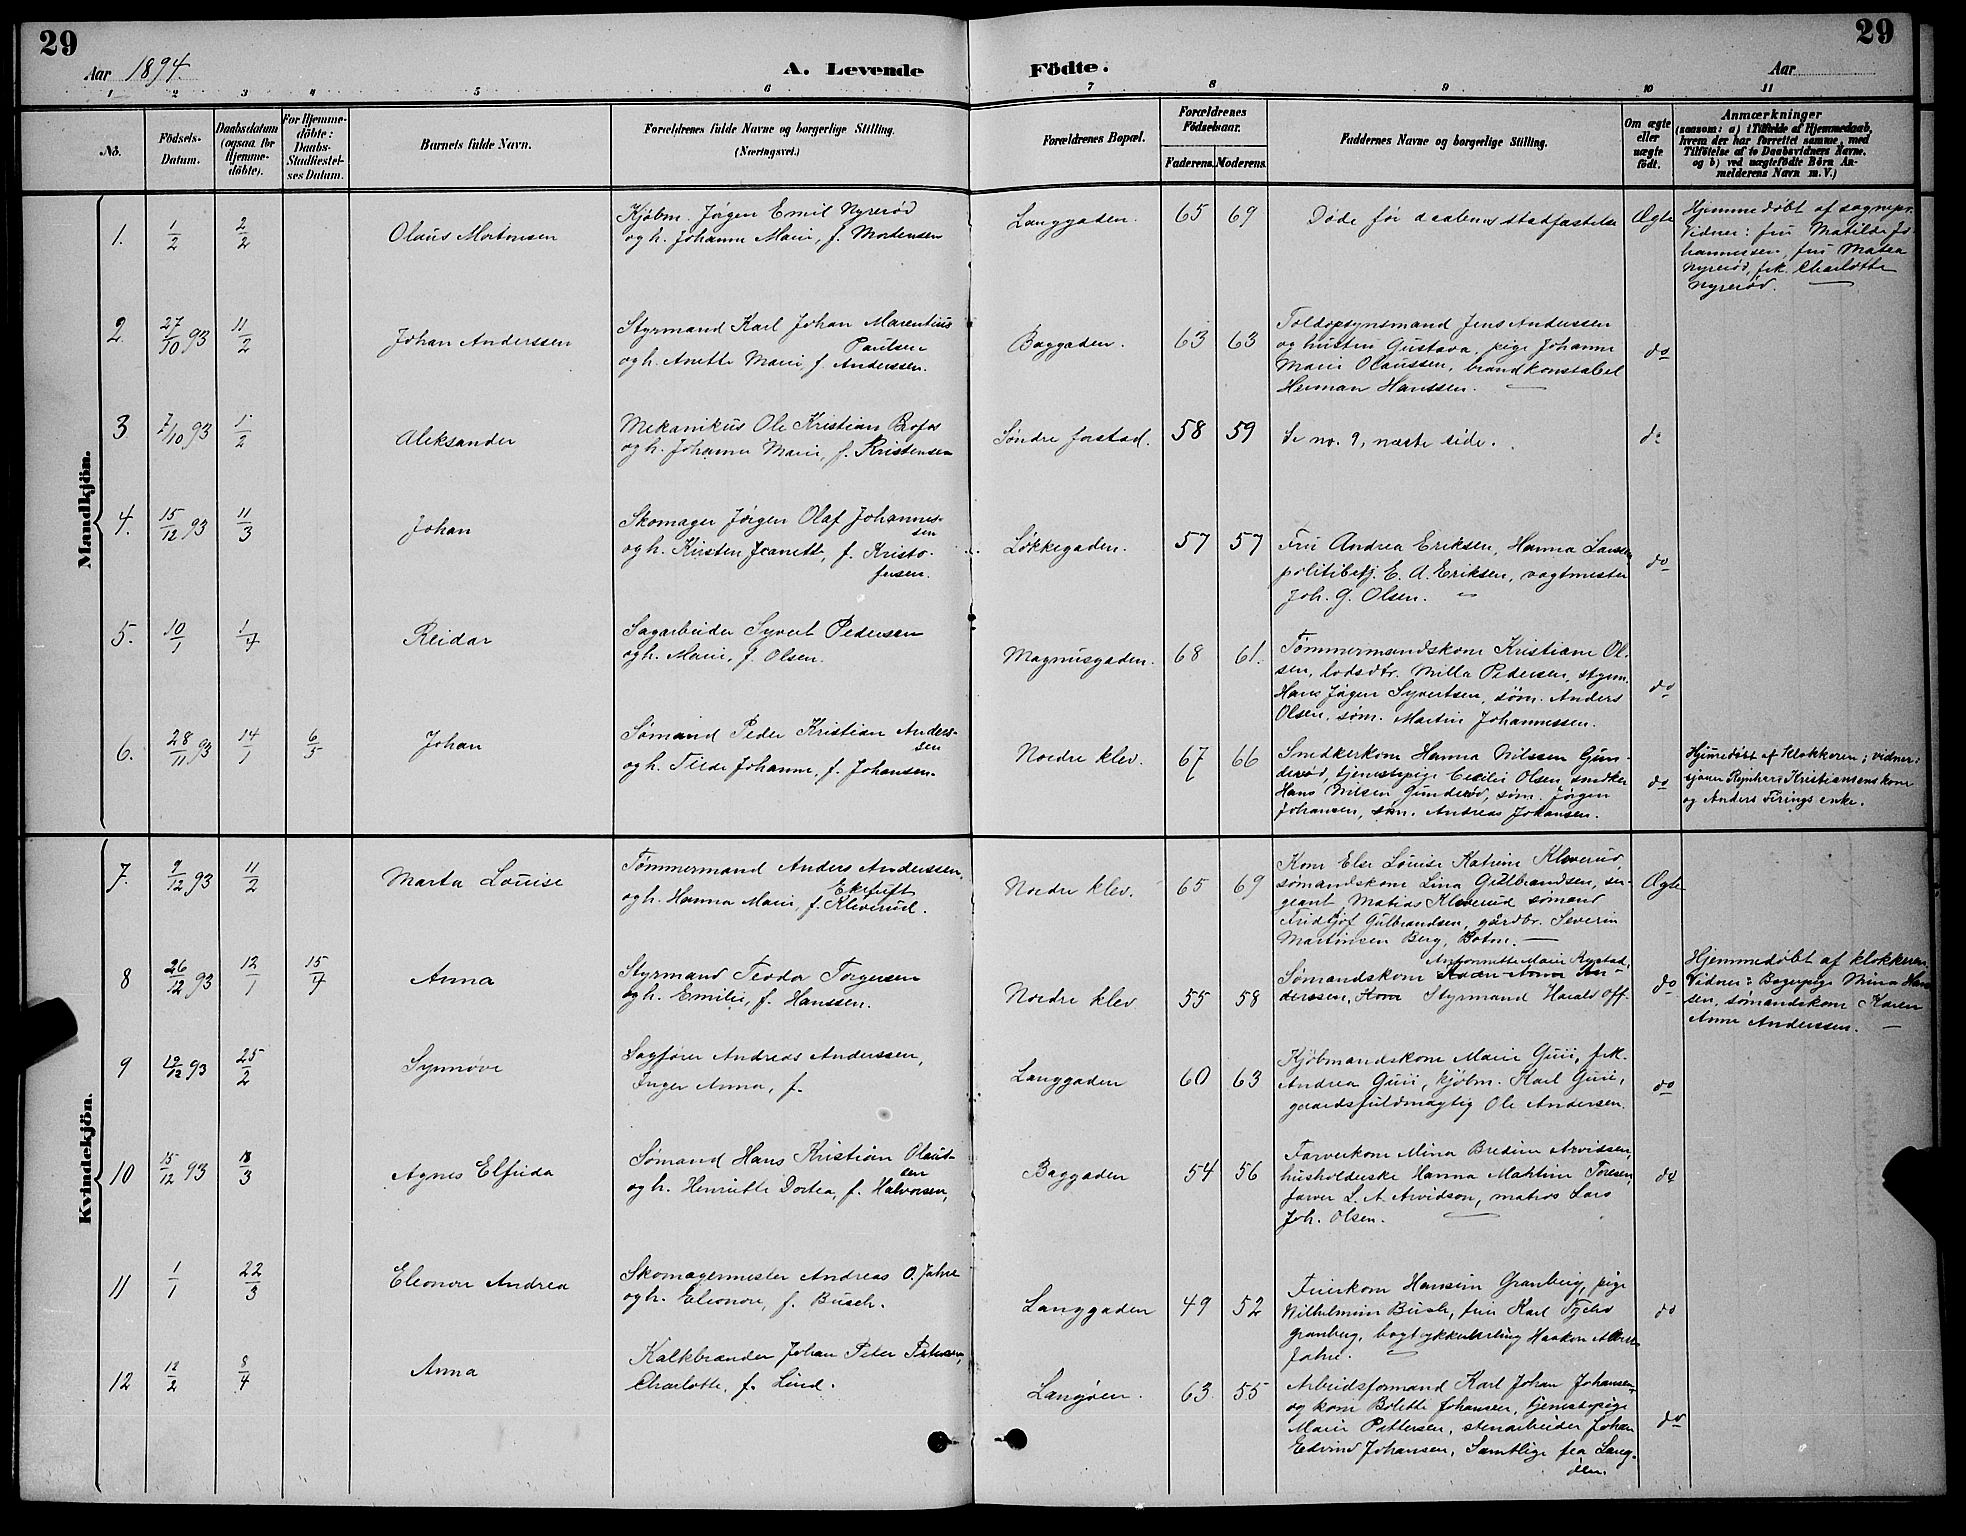 29
29
Aar 1894.
A. Levende
Födte.
Aar
1 2 3 4 5 6 7 8 9 10 11
No.
Födsels-
Datum.
Daabsdatum
(ogsaa for
Hjemme-
döbte).
For Hjemme-
döbte:
Daabs-
Stadfæstel-
ses Datum.
Barnets fulde Navn.
Forældrenes fulde Navne og borgerlige Stilling.
(Næringsvei.)
Forældrenes Bopæl.
Forældrenes
Födselsaar.
Faderens. Moderens.
Faddernes Navne og borgerlige Stilling.
Om ægte
eller
uægte
födt.
Anmærkninger
(saasom: a) i Tilfælde af Hjemmedaab,
hvem der har forrettet samme, med
Tilföielse af to Daabsvidners Navne,
og b) ved uægtefödte Börn An-
melderens Navn m. V.)
Mandkjön.
1. 1/2 2/2 Olaus Mortensen
Kjøbm. Jørgen Emil Nyrerød
og h. Johanne Marie, f. Mortensen
Langgaden. 65 69 Døde før daabens stadfæstelse Ægte
Hjemmedøbt af sognepr.
Vidner: fru Matilde Jo-
hannessen, fru Matea
Nyrerød, frk. Charlotte
Nyrerød.
2 27/10 93 11/2 Johan Anderssen
Styrmand Karl Johan Marentius
Paulsen
og h. Anette Marie f. Anderssen.
Baggaden. 63 63
Toldopsynsmand Jens Anderssen
og hustru Gustava, pige Johanne
Marie Olaussen, brandkonstabel
Herman Hanssen.
do
3 7/10 93 1/2 Aleksander
Mekanikus Ole Kristian Bofos
og h. Johanne Marie, f. Kristensen
Søndre forstad. 58 59 Se no. 9, næste side. do
4. 15/12 93 11/3 Johan
Skomager Jørgen Olaf Johannes-
sen
og h. Kirsten Jeanett, f. Kristo-
fersen.
Løkkegaden. 57 57
Fru Andrea Eriksen, Hanna Larsen,
politibetj. E. A. Eriksen, vagtmester
Joh. G. Olsen.
do
5. 10/1 1/4 Reidar
Sagarbeider Syvert Pedersen
og h. Marie, f. Olsen.
Magnusgaden. 68 61.
Tømmermandskone Kristiane Ol-
sen, lodsdtr. Milla Pedersen, styrm.
Hans Jørgen Syvertsen, søm. Anders
Olsen, søm. Martin Johannessen.
do
6. 28/11 93 14/1 6/5 Johan
Sømand Peder Kristian Anders-
sen
og h. Tilde Johanne, f. Johansen.
Nordre klev. 67 66
Snedkerkone Hanna Nilssen Gun-
derød, tjenestepige Cecilie Olsen, snedker
Hans Nilsen Gunderød, søm. Jørgen
Johansen, søm. Andreas Johansen.
do
Hjemmedøbt af klokkeren; vidner:
sjauer Reinhart Kristiansens kone
og Anders Firings enke.
Kvindekjön.
7. 9/12 93 11/2 Marta Louise
Tømmermand Anders Anderssen,
Ekefift
og h. Hanna Marie, f. Kleverud.
Nordre klev. 65 69
Kone Else Louise Katrine Kleverud,
sømandskone Lina Gulbrandsen, ser-
geant Matias Kleverud sømand
Fridtjof Gulbrandsen, gårdbr. Severin
Martinsen Berg, Botne.
Ægte
8 26/12 93 12/1 15/4 Anna
Styrmand Teodor Torgersen
og h. Emilie, f. Hanssen.
Nordre klev 55 58
Antonnette Marie Rystad,
Sømandskone Karen Anna An-
derssen, Kone Styrmand Harald Off-
do
Hjemmedøbt af klokkeren.
Vidner: Bagerpige Mina Han-
sen, sømandskone Karen
Anne Anderssen.
9 12/12 93 25/2 Synnøve
Sagfører Andreas Anderssen,
Inger Anna, f.
Langgaden 60 63
Kjøbmandskone Marie Guii, frk.
Andrea Guii, kjøbm. Karl Guii,
gaardsfuldmægtig Ole Andersen.
do
10 15/12 93 18/3 Agnes Elfrida
Sømand Hans Kristian Olaus-
sen
og h. Henriette Dortea, f. Halvorsen,
Baggaden 54 56
Farverkone Mina Bredine Arvidsen,
husholderske Hanna Maktine Toresen,
farver L. A. Arvidson, matros Lars
Joh. Olsen.
do
11 1/1 22/3 Eleonore Andrea
Skomagermester Andreas O. Jahre
og h. Eleonore, f. Busch.
Langgaden 49 52
Feierkone Hansine Granberg, pige
Wilhelmine Bush, feier Karl Tycho
Granberg, bogtykkerlærling Haakon
Jahre.
do
12 12/2 8/4 Anna
Kalkbrænder Johan Peter Petersen,
Charlotte, f. Lind.
Langøen. 63 55
Arbeidsformand Karl Johan Johansen,
og kone Bolette Johansen, tjenestepige
Marie Pettersen, stenarbeider Johan
Edvind Johansen, Samtlige fra Lang-
øen.
do